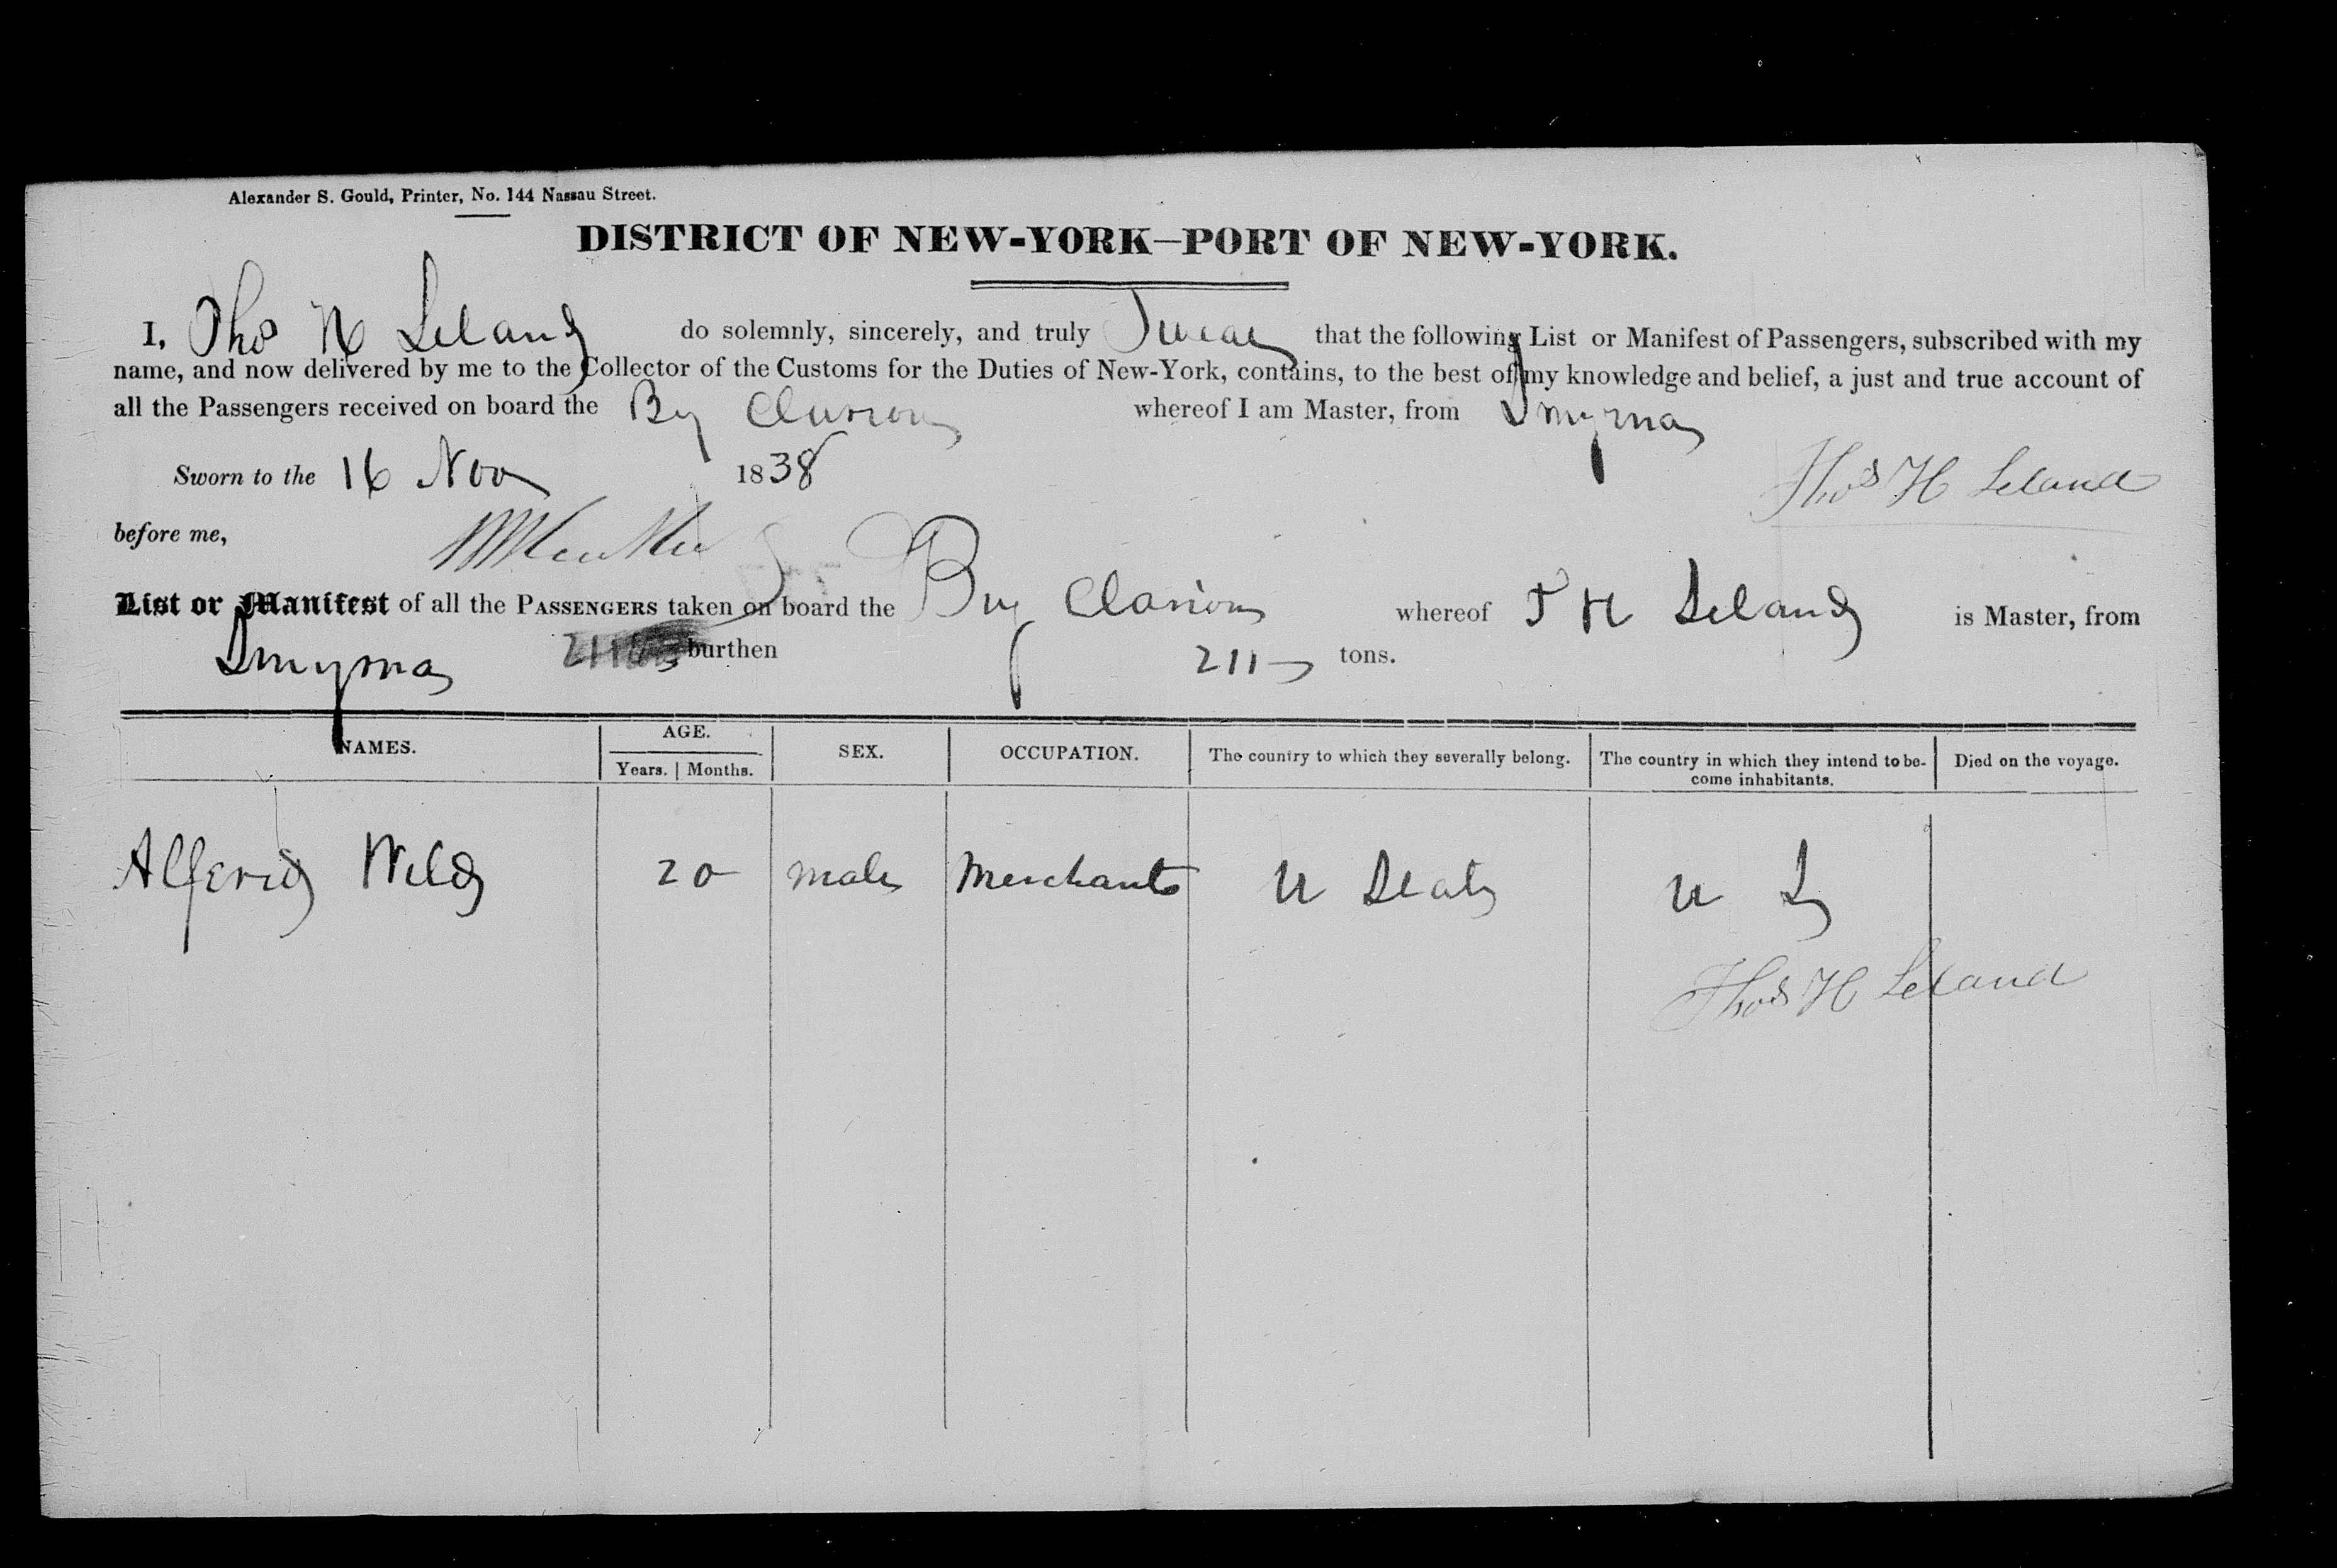 Alexander S. Gould, Printer, No. 144 Nassau Street.
DISTRICT OF NEW-YORK—PORT OF NEW-YORK.
I, Thos H Leland do solemnly, sincerely, and truly Swear that the following List or Manifest of Passengers, subscribed with my
name, and now delivered by me to the Collector of the Customs for the Duties of New-York, contains, to the best of my knowledge and belief, a just and true account of
all the Passengers received on board the Brig Clarion whereof I am Master, from Smyrna
Sworn to the 16 Nov 1838 Thos H Leland
before me,
List or Manifest of all the PASSENGERS taken on board the Brig Clarion whereof T H Leland is Master, from
Smyrna burthen 211 tons.
NAMES. AGE. Years. | Months. SEX. OCCUPATION. The country to which they severally belong. The country in which they intend to be-
come inhabitants. Died on the voyage.
Alfered Wild 20 male Merchant U States U S
Thos H Leland